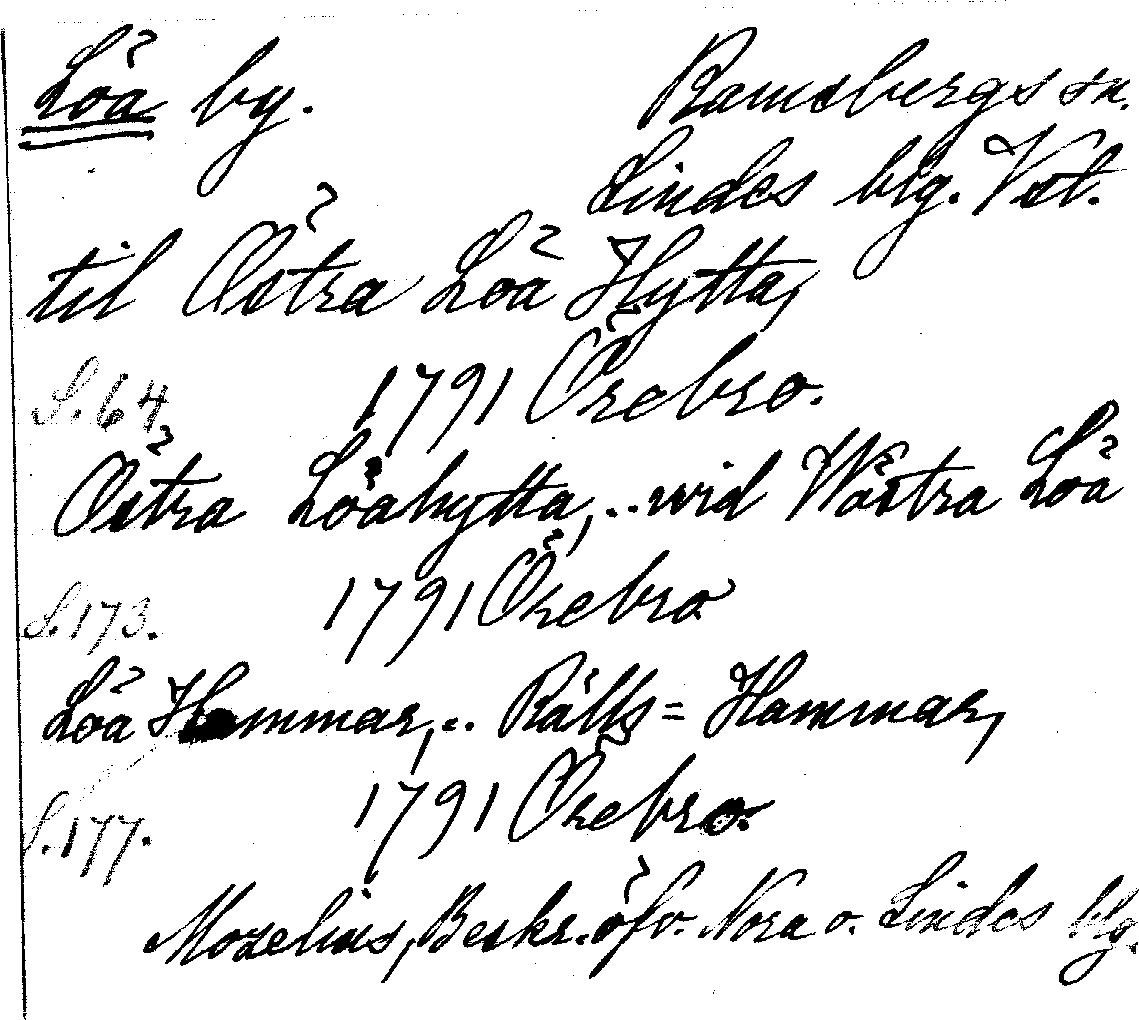 Löa by. Ramsbergs sn.
Lindes blg. Vstl.
til Östra Löa Hytta,
S. 64 1791 Örebro.
Östra Löahytta,... wid Wästra Löa
S. 173. 1791 Örebro
Löa Hammar,... Rälls= Hammar,
S. 177. 1791 Örebro.
Mozelius, Beskr. öfv. Nora o. Lindes blg.